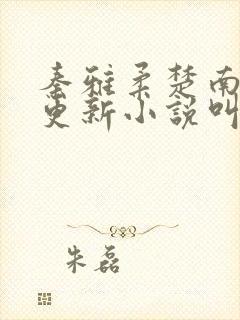 秦雅柔楚南
更新小説叫
朱磊